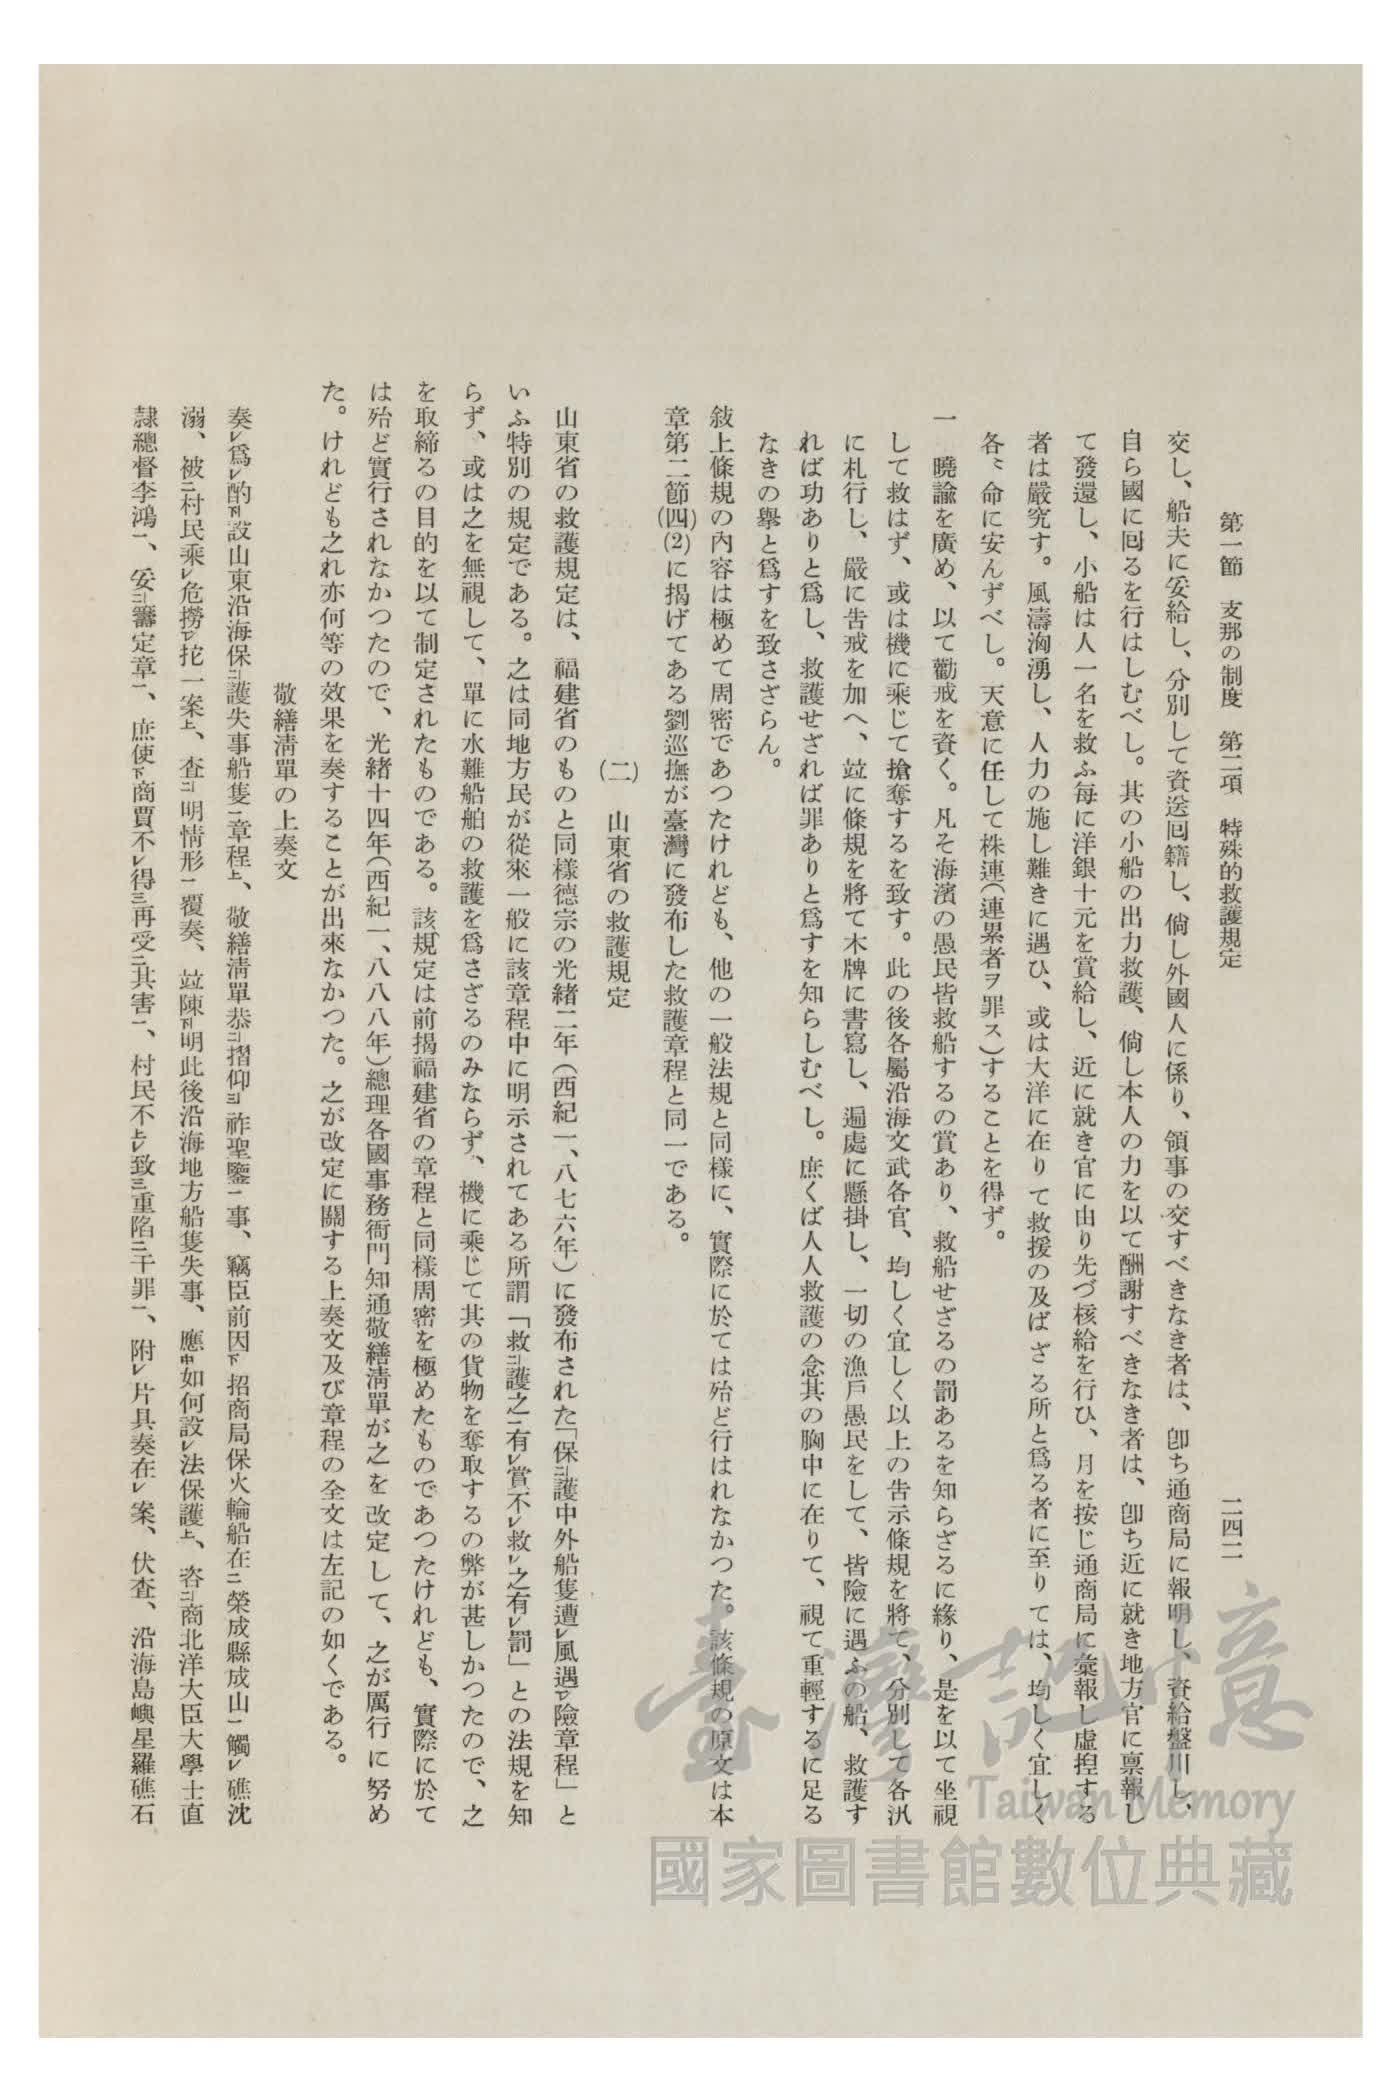 第一節 支那の制度 第二項 特殊的救護規定 二四二
交し、船夫に妥給し、分別して資送回籍し、倘し外國人に係り、領事の交すべきなき者は、卽ち通商局に報明し、資給盤川し、
自ら國に囘るを行はしむべし。其の小船の出力救護、倘し本人の力を以て酬謝すべきなき者は、卽ち近に就き地方官に稟報し
て發還し、小船は人一名を救ふ每に洋銀十元を賞給し、近に就き官に由り先づ核給を行ひ、月を按じ通商局に彙報し虛揑する
者は嚴究す。風濤洶湧し、人力の施し難きに遇ひ、或は大洋に在りて救援の及ばざる所と爲る者に至りては、均しく宜しく
各〻命に安んずべし。天意に任して株連(連累者ヲ罪ス)することを得ず。
一 曉諭を廣め、以て勸戒を資く。凡そ海濱の愚民皆救船するの賞あり、救船せざるの罰あるを知らざるに緣り、是を以て坐視
して救はず、或は機に乘じて搶奪するを致す。此の後各屬沿海文武各官、均しく宜しく以上の吿示條規を將て、分別して各汛
に札行し、嚴に吿戒を加へ、竝に條規を將て木牌に書寫し、遍處に懸掛し、一切の漁戶愚民をして、皆險に遇ふの船、救護す
れば功ありと爲し、救護せざれば罪ありと爲すを知らしむべし。庶くば人人救護の念其の胸中に在りて、視て重輕するに足る
なきの擧と爲すを致さざらん。
敍上條規の內容は極めて周密であつたけれども、他の一般法規と同樣に、實際に於ては殆ど行はれなかつた。該條規の原文は本
章第二節(四)(2)に揭げてある劉巡撫が臺灣に發布した救護章程と同一である。
(二) 山東省の救護規定
山東省の救護規定は、福建省のものと同樣德宗の光緖二年(西紀一、八七六年)に發布された「保二護中外船隻遭レ風遇レ險章程」と
いふ特別の規定である。之は同地方民が從來一般に該章程中に明示されてある所謂「救二護之一有レ賞不レ救レ之有レ罰」との法規を知
らず、或は之を無視して、單に水難船舶の救護を爲さざるのみならず、機に乘じて其の貨物を奪取するの弊が甚しかつたので、之
を取締るの目的を以て制定されたものである。該規定は前揭福建省の章程と同樣周密を極めたものであつたけれども、實際に於て
は殆ど實行されなかつたので、光緖十四年(西紀一、八八八年)總理各國事務衙門知通敬繕淸單が之を改定して、之が厲行に努め
た。けれども之れ亦何等の效果を奏することが出來なかつた。之が改定に關する上奏文及び章程の全文は左記の如くである。
敬繕淸單の上奏文
奏レ爲レ酌下設山東沿海保二護失事船隻一章程上、敬繕淸單恭二摺仰三祚聖鑒一事、竊臣前因下招商局保火輪船在二榮成縣成山一觸レ礁沈
溺、被二村民乘レ危撈レ扡一案上、査二明情形一覆奏、竝陳下明此後沿海地方船隻失事、應中如何設レ法保護上、咨二商北洋大臣大學士直
隷總督李鴻一、妥二籌定章一、庶使下商賈不レ得三再受二其害一、村民不上レ致三重陷二干罪一、附レ片具奏在レ案、伏査、沿海島嶼星羅礁石
臺灣記憶
Taiwan Memory
國家圖書館數位典藏